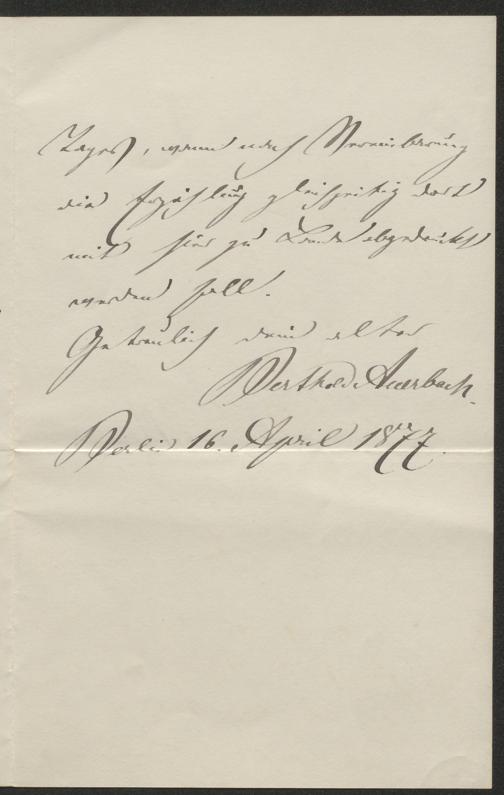 Tages, wann nach Vereinbarung
die Erzählung gleichzeitig dort
mit hier zu Ende abgedruckt
werden soll.
Getreulich dein alter
Berthold Auerbach.
Berlin 16. April 1877.